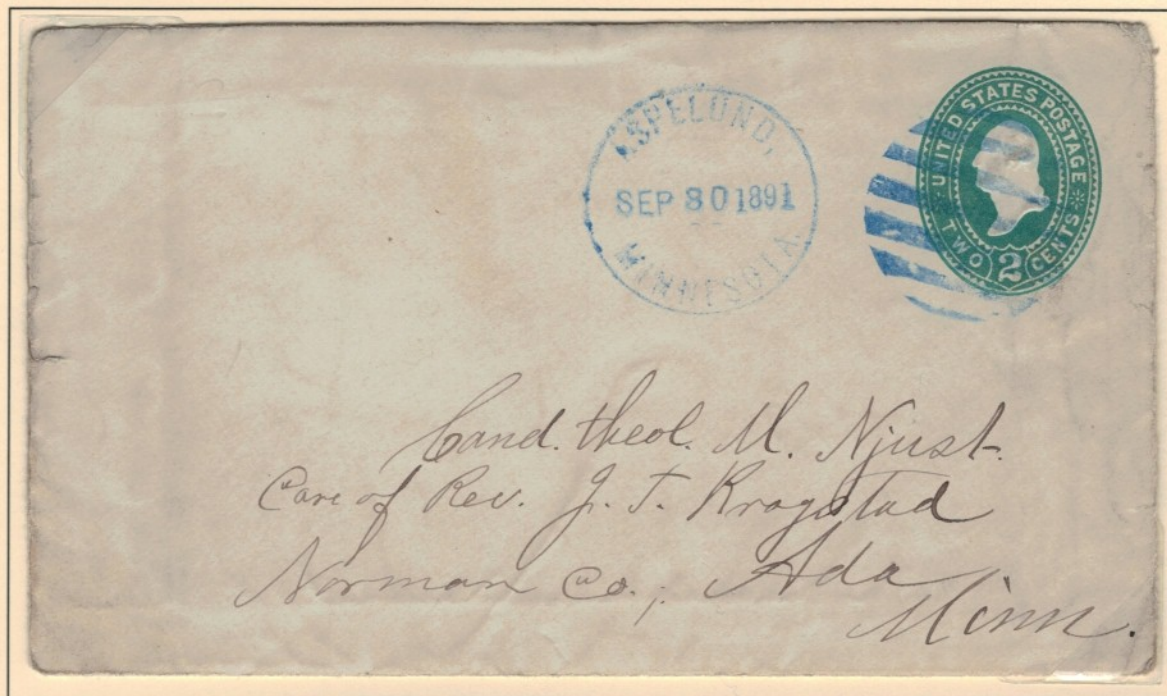 ASPELUND,
SEP 30 1891
MINNESOTA.
UNITED STATES POSTAGE
TWO 2 CENTS
Cand. theol. M. Njust.
Care of Rev. J. T. Krogstad
Norman Co., Ada
Minn.